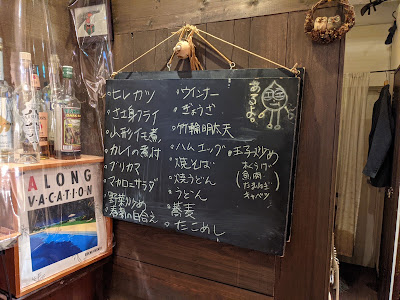 ・ヒレカツ
・ささ身フライ
・山形イモ煮
・カレイの煮付
・ブリカマ
・マカロニサラダ
・野菜炒め
・春菊の白合え
・ウインナー
・ぎょうざ
・竹輪明太天
・ハムエッグ
・焼そば
・焼うどん
・うどん
・蕎麦
・たこめし
あるよ。
・玉子炒め
木くらげ
魚肉
たまねぎ
キャベツ
A LONG
VACATION